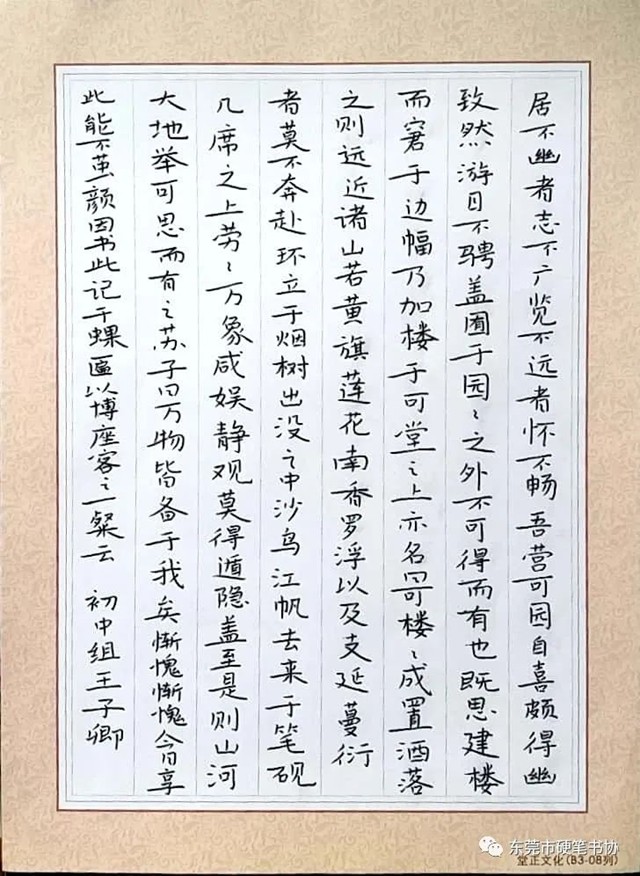 居不幽者志不广览不远者怀不畅吾营可园自喜颇得幽
致然游目不骋盖囿于园〻之外不可得而有也既思建楼
而窘于边幅乃加楼于可堂〻上亦名曰可楼〻成置洒落
之则远近诸山若黄旗莲花南香罗浮以及支延蔓衍
者莫不奔赴环立于烟树出没之中沙鸟江帆去来于笔砚
几席之上劳〻万象咸娱静观莫得遁隐盖至是则山河
大地举可思而有之苏子曰万物皆备于我矣惭愧惭愧今日享
此能不茧颜因书此记于蜾匾以博座客之一粲云 初中组王子卿
东莞市硬笔书协
堂正文化(B3-08列)